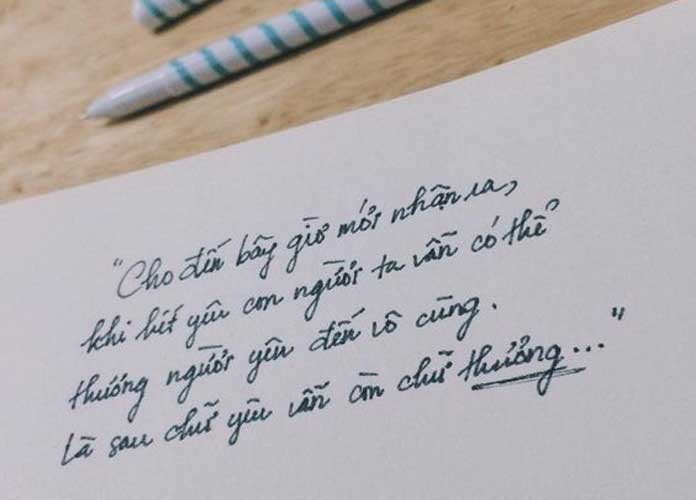 "Cho đến bây giờ mới nhận ra,
khi hết yêu con người ta vẫn có thể
thương người yêu đến vô cùng.
Là sau chữ yêu vẫn còn chữ thương..."